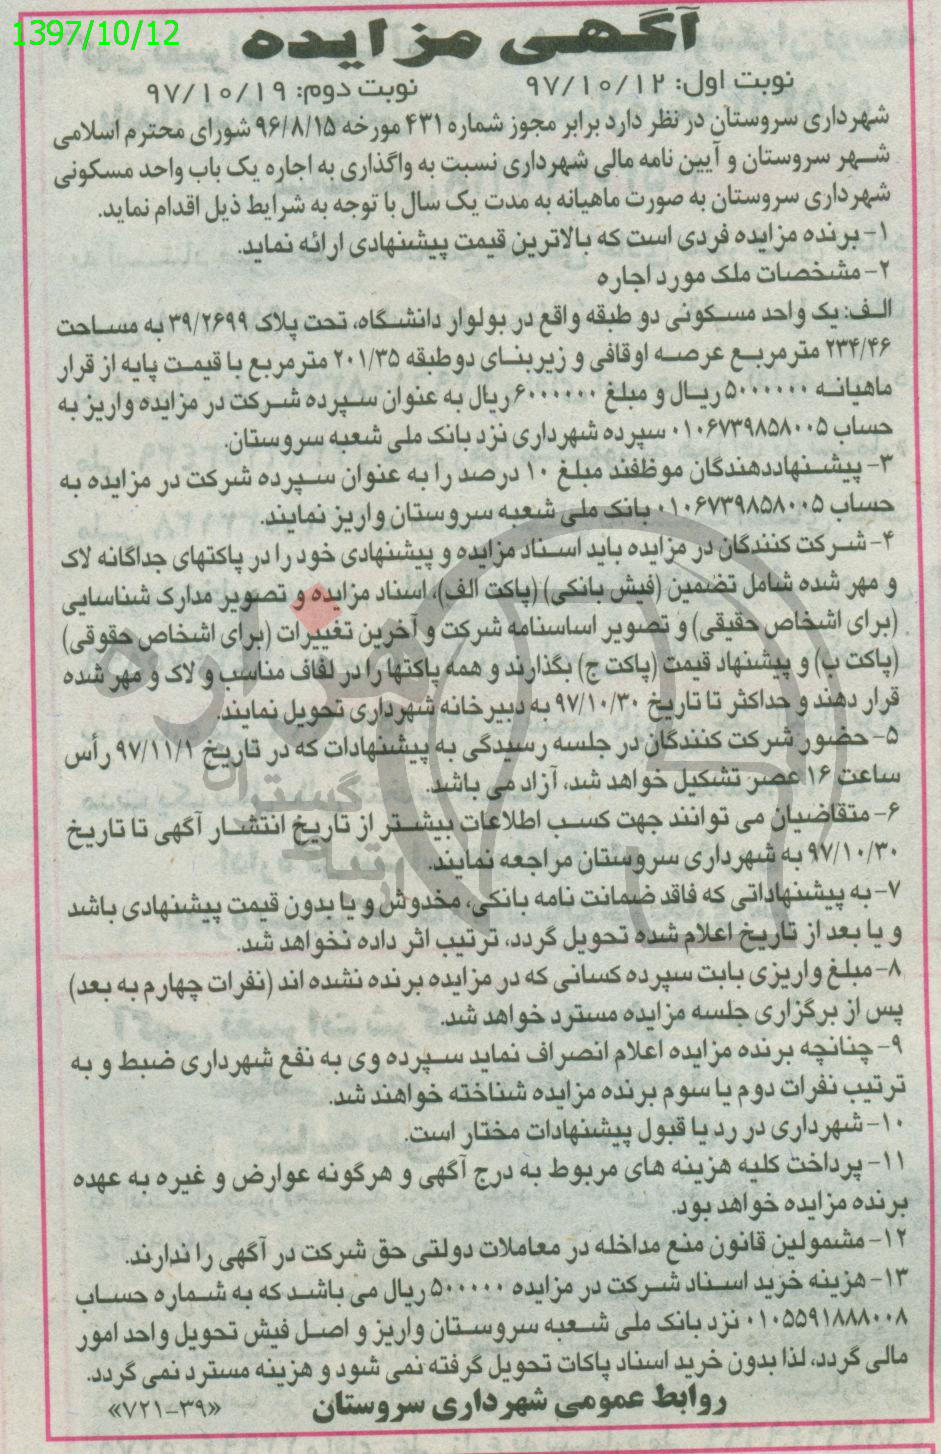 1397/10/12
آگهی مزایده
نوبت اول: ۹۷/۱۰/۱۲ نوبت دوم: ۹۷/۱۰/۱۹
شهرداری سروستان در نظر دارد برابر مجوز شماره ۴۳۱ مورخه ۹۶/۸/۱۵ شورای محترم اسلامی
شهر سروستان و آیین نامه مالی شهرداری نسبت به واگذاری به اجاره یک باب واحد مسکونی
شهرداری سروستان به صورت ماهیانه به مدت یک سال با توجه به شرایط ذیل اقدام نماید.
۱- برنده مزایده فردی است که بالاترین قیمت پیشنهادی ارائه نماید.
۲- مشخصات ملک مورد اجاره
الف: یک واحد مسکونی دو طبقه واقع در بولوار دانشگاه، تحت پلاک ۳۹/۲۶۹۹ به مساحت
۲۳۴/۴۶ مترمربع عرصه اوقافی و زیربنای دوطبقه ۲۰۱/۳۵ مترمربع با قیمت پایه از قرار
ماهیانه ۵۰۰۰۰۰۰ ریال و مبلغ ۶۰۰۰۰۰۰ ریال به عنوان سپرده شرکت در مزایده واریز به
حساب ۰۱۰۶۷۳۹۸۵۸۰۰۵ سپرده شهرداری نزد بانک ملی شعبه سروستان.
۳- پیشنهاددهندگان موظفند مبلغ ۱۰ درصد را به عنوان سپرده شرکت در مزایده به
حساب ۰۱۰۶۷۳۹۸۵۸۰۰۵ بانک ملی شعبه سروستان واریز نمایند.
۴- شرکت کنندگان در مزایده باید اسناد مزایده و پیشنهادی خود را در پاکتهای جداگانه لاک
و مهر شده شامل تضمین (فیش بانکی) (پاکت الف)، اسناد مزایده و تصویر مدارک شناسایی
(برای اشخاص حقیقی) و تصویر اساسنامه شرکت و آخرین تغییرات (برای اشخاص حقوقی)
(پاکت ب) و پیشنهاد قیمت (پاکت ج) بگذارند و همه پاکتها را در لفاف مناسب و لاک و مهر شده
قرار دهند و حداکثر تا تاریخ ۹۷/۱۰/۳۰ به دبیرخانه شهرداری تحویل نمایند.
۵- حضور شرکت کنندگان در جلسه رسیدگی به پیشنهادات که در تاریخ ۹۷/۱۱/۱ رأس
ساعت ۱۶ عصر تشکیل خواهد شد، آزاد می باشد.
۶- متقاضیان می توانند جهت کسب اطلاعات بیشتر از تاریخ انتشار آگهی تا تاریخ
۹۷/۱۰/۳۰ به شهرداری سروستان مراجعه نمایند.
۷- به پیشنهاداتی که فاقد ضمانت نامه بانکی، مخدوش و یا بدون قیمت پیشنهادی باشد
و یا بعد از تاریخ اعلام شده تحویل گردد، ترتیب اثر داده نخواهد شد.
۸- مبلغ واریزی بابت سپرده کسانی که در مزایده برنده نشده اند (نفرات چهارم به بعد)
پس از برگزاری جلسه مزایده مسترد خواهد شد.
۹- چنانچه برنده مزایده اعلام انصراف نماید سپرده وی به نفع شهرداری ضبط و به
ترتیب نفرات دوم یا سوم برنده مزایده شناخته خواهند شد.
۱۰- شهرداری در رد یا قبول پیشنهادات مختار است.
۱۱- پرداخت کلیه هزینه های مربوط به درج آگهی و هرگونه عوارض و غیره به عهده
برنده مزایده خواهد بود.
۱۲- مشمولین قانون منع مداخله در معاملات دولتی حق شرکت در آگهی را ندارند.
۱۳- هزینه خرید اسناد شرکت در مزایده ۵۰۰۰۰۰ ریال می باشد که به شماره حساب
۰۱۰۵۵۹۱۸۸۸۰۰۸ نزد بانک ملی شعبه سروستان واریز و اصل فیش تحویل واحد امور
مالی گردد، لذا بدون خرید اسناد پاکات تحویل گرفته نمی شود و هزینه مسترد نمی گردد.
روابط عمومی شهرداری سروستان «۳۹-۷۲۱»